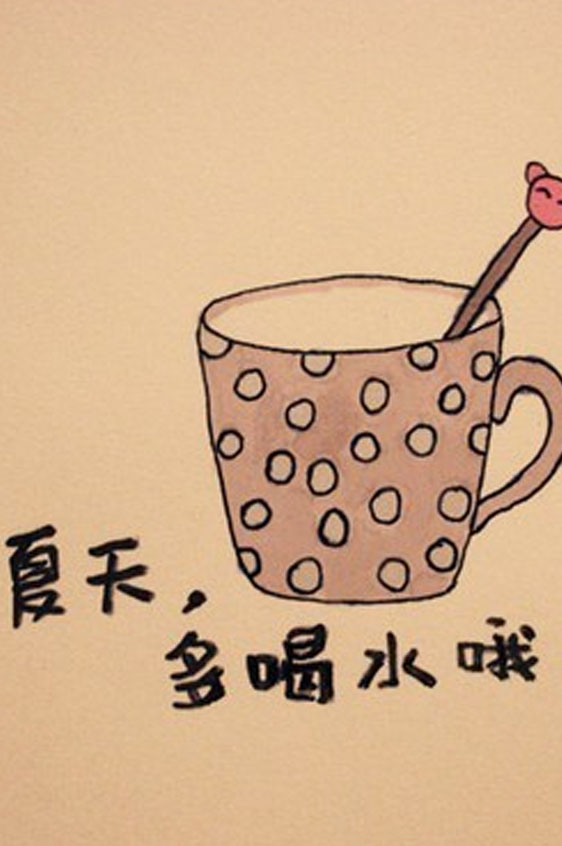 夏天，
多喝水哦